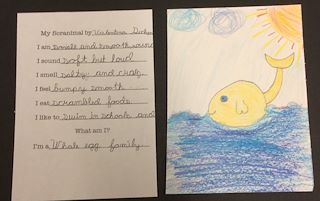 My Scranimal by Valentina
I am small and smooth
I sound soft but loud
I smell salty and
I feel bumpy smooth
I eat scrambled foods
I like to swim in schools and
What am I?
I'm a Whale egg family